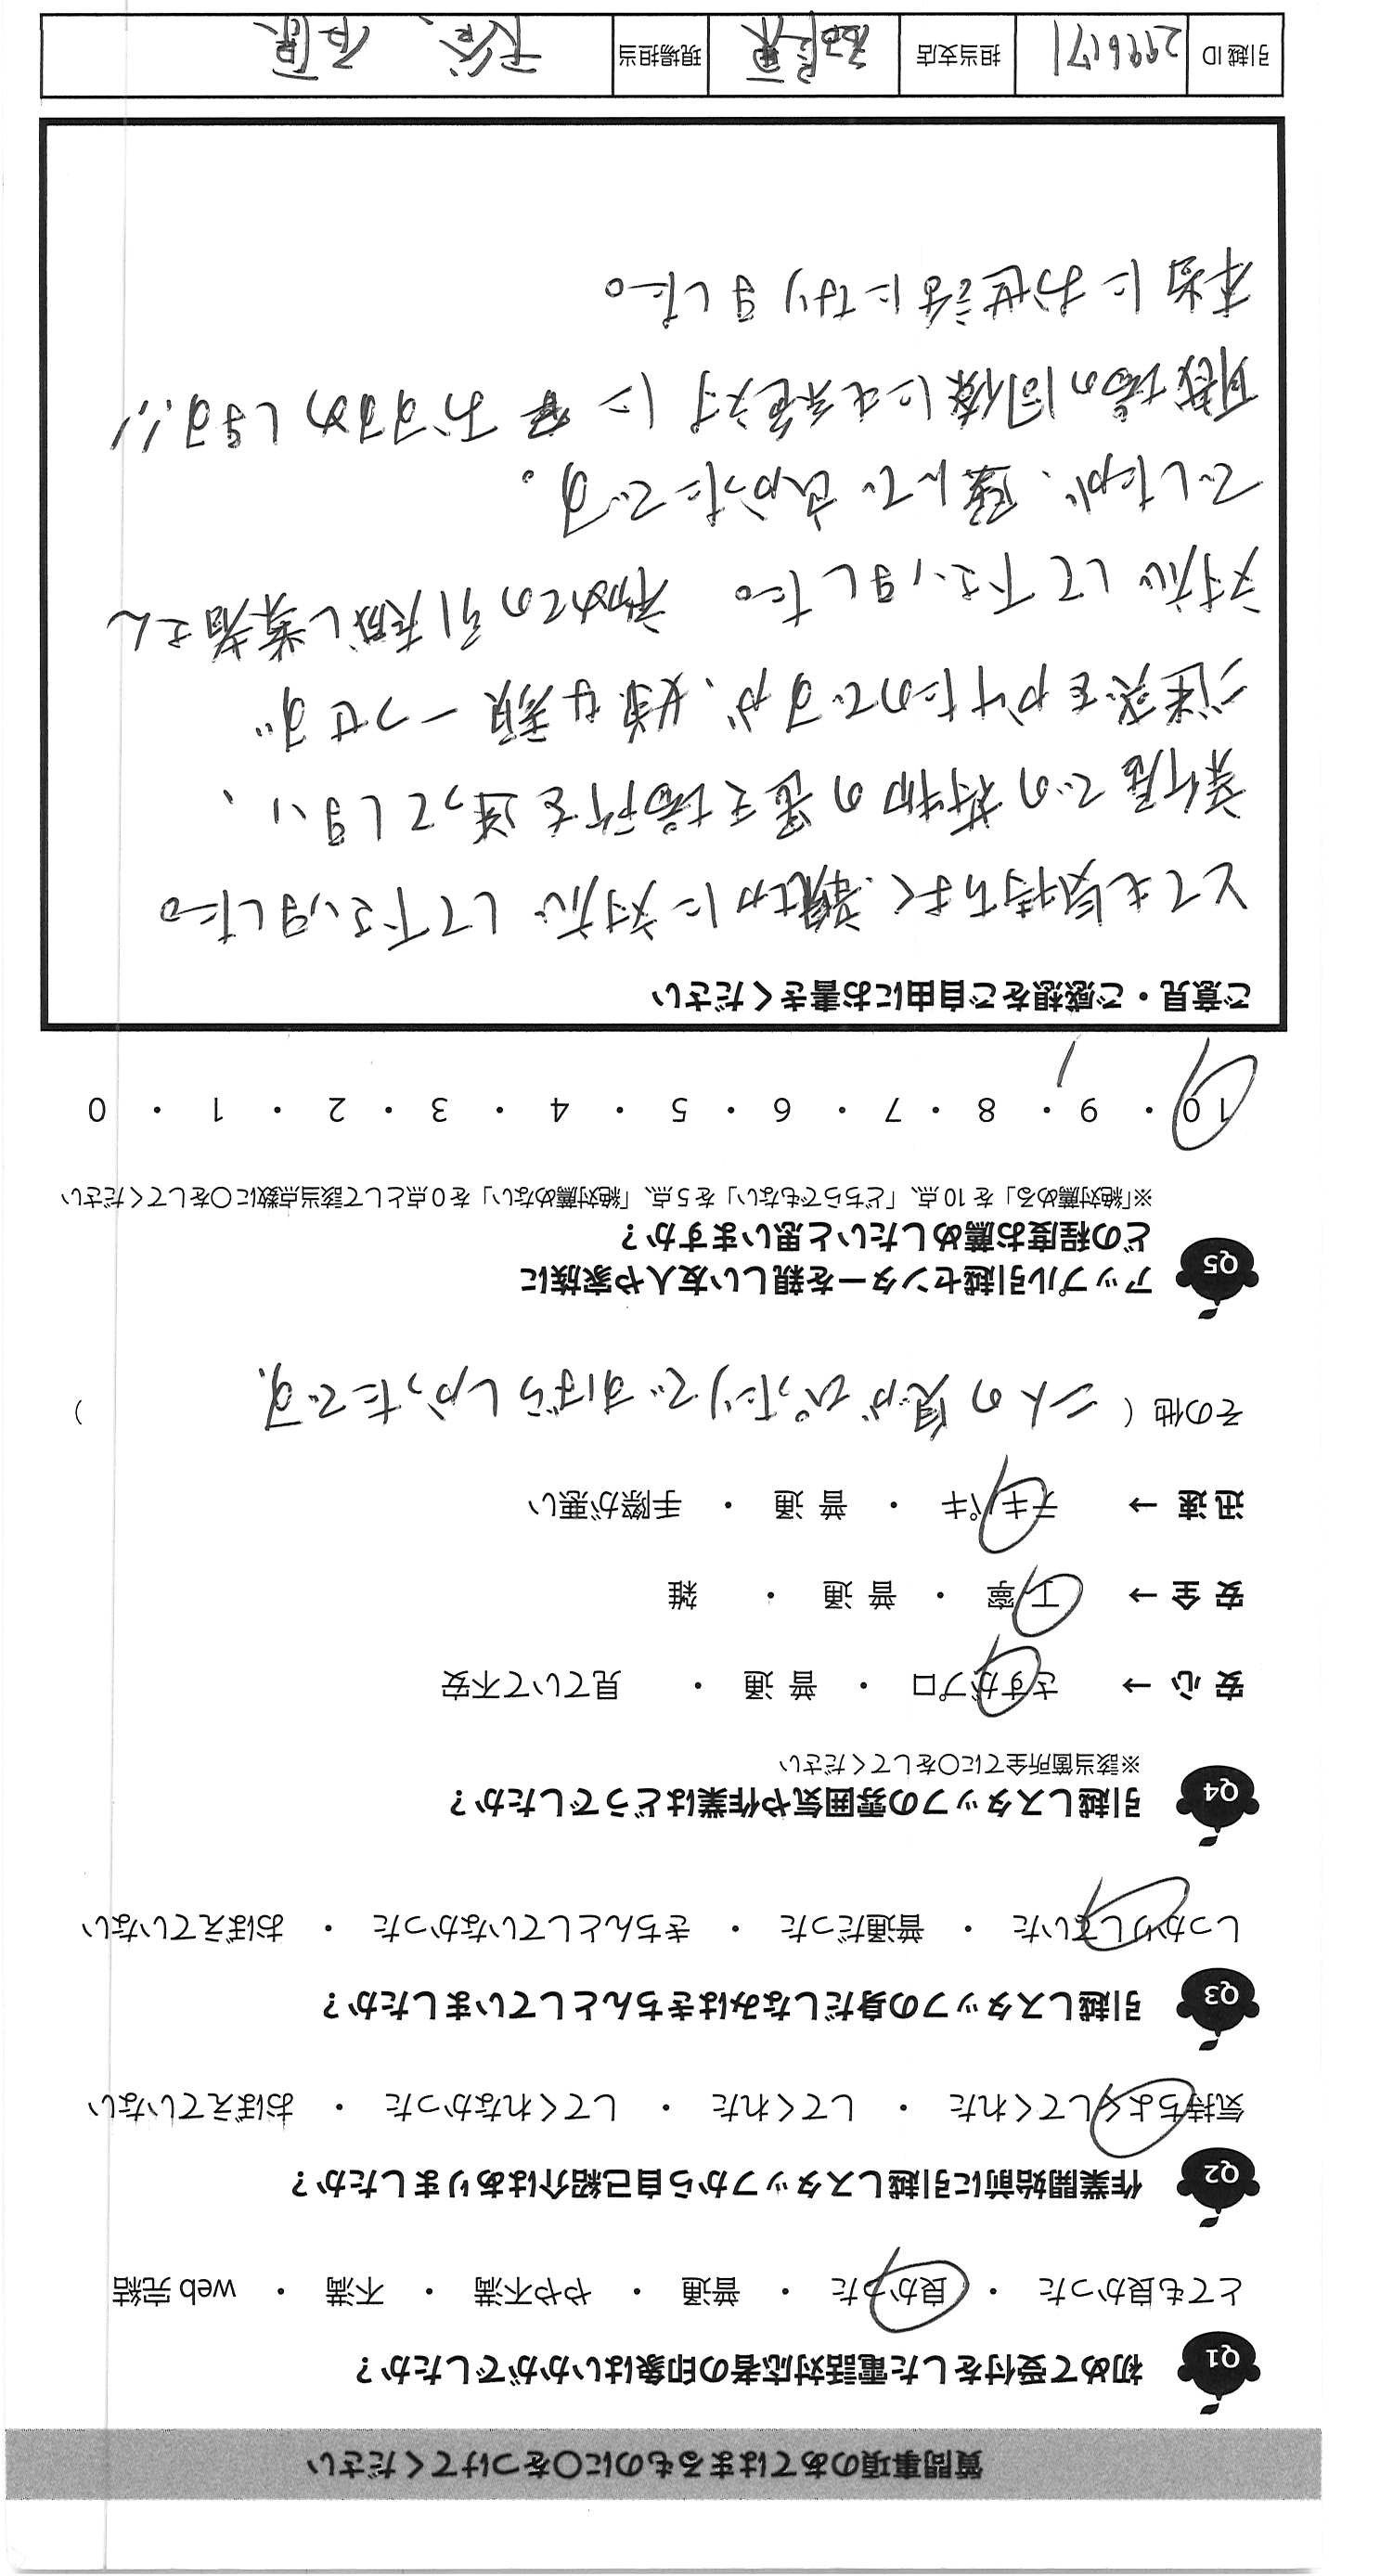 質問事項のあてはまるものに〇をつけてください
Q1 初めて受付をした電話対応者の印象はいかがでしたか？
とても良かった ・ 良かった ・ 普通 ・ やや不満 ・ 不満 ・ web 完結
Q2 作業開始前に引越しスタッフから自己紹介はありましたか？
気持ちよくしてくれた ・ してくれた ・ してくれなかった ・ おぼえていない
Q3 引越しスタッフの身だしなみはきちんとしていましたか？
しっかりしていた ・ 普通だった ・ きちんとしていなかった ・ おぼえていない
Q4 引越しスタッフの雰囲気や作業はどうでしたか？
※該当箇所全てに〇をしてください
安 心 → さすがプロ ・ 普 通 ・ 見ていて不安
安 全 → 丁 寧 ・ 普 通 ・ 雑
迅 速 → テキパキ ・ 普 通 ・ 手際が悪い
その他（ 二人の息がぴったりですばらしかったです。 ）
Q5 アップル引越センターを親しい友人や家族に
どの程度お薦めしたいと思いますか？
※「絶対薦める」を 10 点、「どちらでもない」を 5 点、「絶対薦めない」を 0 点として該当点数に〇をしてください
10 ・ 9 ・ 8 ・ 7 ・ 6 ・ 5 ・ 4 ・ 3 ・ 2 ・ 1 ・ 0
ご意見・ご感想をご自由にお書きください
とても気持ちよく、親切に対応して下さいました。
新居での荷物の置き場所を迷ってしまい、
ご迷惑をかけたのですが、嫌な顔一つせず
対応して下さいました。初めての引越し業者さん
でしたが、選んで良かったです。
職場の同僚にも絶対におすすめします!!
本当にお世話になりました。
引越 ID 2996171 担当支店 現場担当